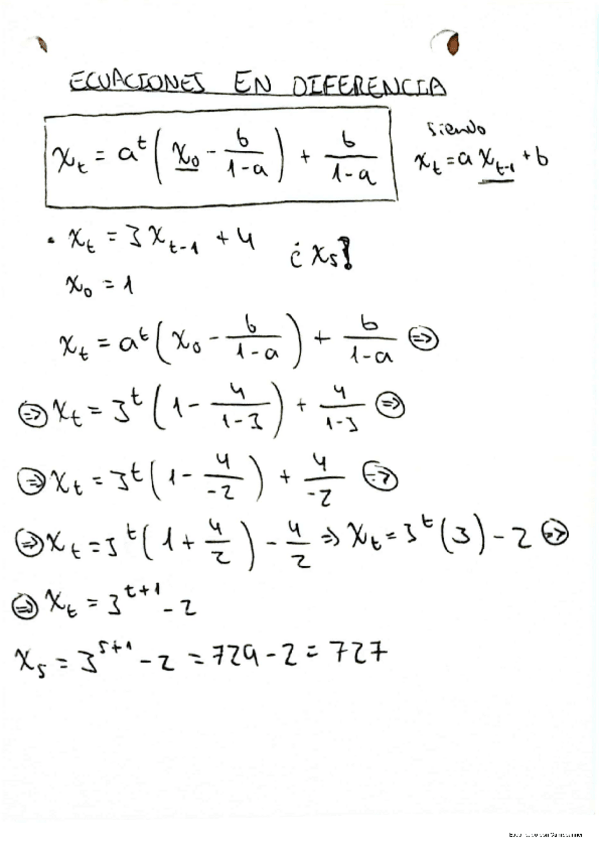 ECUACIONES EN DIFERENCIA
x_t = a^t (x_0 - b/(1-a)) + b/(1-a)
siendo
x_t = a x_{t-1} + b
· x_t = 3x_{t-1} + 4
¿x_5?
x_0 = 1
x_t = a^t (x_0 - b/(1-a)) + b/(1-a) ⇒
⇒ x_t = 3^t (1 - 4/(1-3)) + 4/(1-3) ⇒
⇒ x_t = 3^t (1 - 4/-2) + 4/-2 ⇒
⇒ x_t = 3^t (1 + 4/2) - 4/2 ⇒ x_t = 3^t (3) - 2 ⇒
⇒ x_t = 3^{t+1} - 2
x_5 = 3^{5+1} - 2 = 729 - 2 = 727